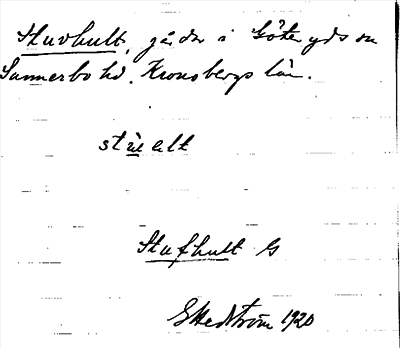 Stuvhult, gårdar i Göteryds sn
Sunnerbo hd. Kronobergs län.
Stufhult G
G Hedström 1920